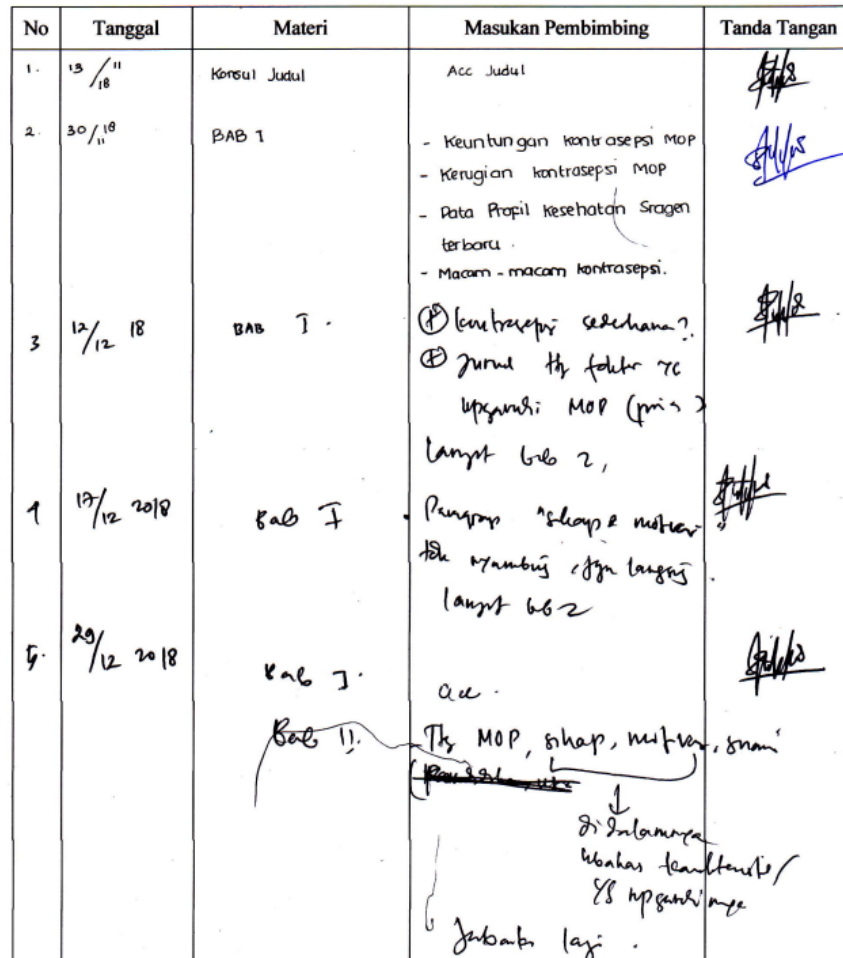 No Tanggal Materi Masukan Pembimbing Tanda Tangan
1. 13/11 18 Konsul Judul Acc Judul
2. 30/11 18 BAB I - Keuntungan kontrasepsi MOP
- Kerugian kontrasepsi MOP
- Data Profil Kesehatan Sragen
terbaru.
- Macam-macam kontrasepsi.
3 12/12 18 BAB I. + kontrasepsi sederhana?
+ Jurnal ttg faktor yg
MOP (pria)
lanjut bab 2,
4 17/12 2018 Bab I "sikap & motivasi"
tdk nyambung, jgn langsung.
lanjut bab 2
5. 29/12 2018 Bab I. acc.
Bab II. Ttg MOP, sikap, motivasi, suami
di dalamnya
karakteristik/
yg
lagi.